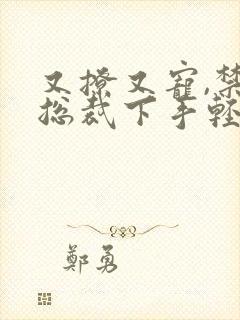 又撩又寵,禁
总裁下手輕
鄭勇